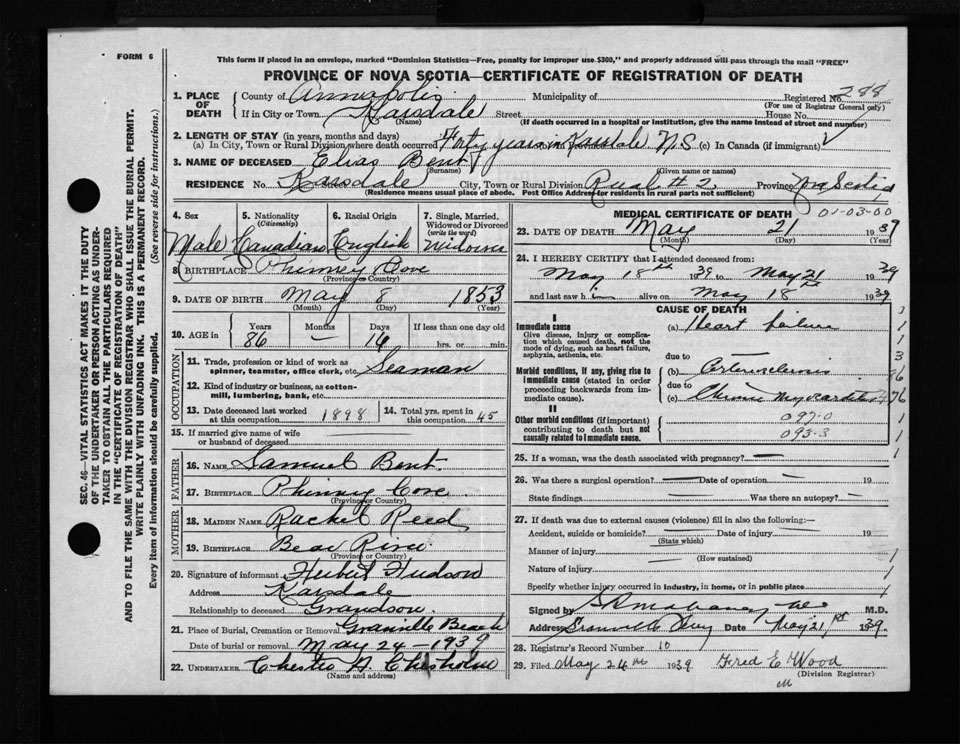 FORM 6
This form if placed in an envelope, marked "Dominion Statistics—Free, penalty for improper use $300," and properly addressed will pass through the mail "FREE"
PROVINCE OF NOVA SCOTIA—CERTIFICATE OF REGISTRATION OF DEATH
SEC. 46—VITAL STATISTICS ACT MAKES IT THE DUTY
OF THE UNDERTAKER OR PERSON ACTING AS UNDER-
TAKER TO OBTAIN ALL THE PARTICULARS REQUIRED
IN THE "CERTIFICATE OF REGISTRATION OF DEATH"
AND TO FILE THE SAME WITH THE DIVISION REGISTRAR WHO SHALL ISSUE THE BURIAL PERMIT.
WRITE PLAINLY WITH UNFADING INK. THIS IS A PERMANENT RECORD.
Every item of information should be carefully supplied. (See reverse side for instructions.)
1. PLACE OF DEATH County of Annapolis Municipality of Registered No. 288
(For use of Registrar General only)
If in City or Town Karsdale Street House No.
(Name) (If death occurred in a hospital or institution, give the name instead of street and number)
2. LENGTH OF STAY (in years, months and days)
(a) In City, Town or Rural Division where death occurred Fifty years in Karsdale N.S (c) In Canada (if immigrant)
3. NAME OF DECEASED Elias Bent
(Surname) (Given name or names)
RESIDENCE No. Karsdale City, Town or Rural Division Rural #2 Province Nova Scotia
(Residence means usual place of abode. Post Office Address for residents in rural parts not sufficient)
4. Sex Male
5. Nationality (Citizenship) Canadian
6. Racial Origin English
7. Single, Married, Widowed or Divorced (write the word) Widower
8. BIRTHPLACE Phinney Cove
(Province or Country)
9. DATE OF BIRTH May 8 1853
(Month) (Day) (Year)
10. AGE in Years Months Days If less than one day old
86 — 14 hrs. or min.
OCCUPATION
11. Trade, profession or kind of work as spinner, teamster, office clerk, etc. Seaman
12. Kind of industry or business, as cotton-mill, lumbering, bank, etc.
13. Date deceased last worked at this occupation 1898
14. Total yrs. spent in this occupation 45
15. If married give name of wife or husband of deceased
FATHER
16. NAME Samuel Bent
17. BIRTHPLACE Phinney Cove
(Province or Country)
MOTHER
18. MAIDEN NAME Rachel Reed
19. BIRTHPLACE Bear River
(Province or Country)
20. Signature of informant Herbert Hudson
Address Karsdale
Relationship to deceased Grandson.
21. Place of Burial, Cremation or Removal Granville Beach
Date of burial or removal May 24 - 1939
22. UNDERTAKER Chester A. Chisholm
(Name and address)
MEDICAL CERTIFICATE OF DEATH 01-03-00
23. DATE OF DEATH May 21 1939
(Month) (Day) (Year)
24. I HEREBY CERTIFY that I attended deceased from:
May 18th 1939 to May 21st 1939
and last saw him alive on May 18 1939
CAUSE OF DEATH
I
Immediate cause (a) Heart failure
Give disease, injury or complication which caused death, not the mode of dying, such as heart failure, asphyxia, asthenia, etc.
due to
Morbid conditions, if any, giving rise to Immediate cause (stated in order proceeding backwards from immediate cause).
(b) Arteriosclerosis
due to
(c) Chronic Myocarditis
II
Other morbid conditions (if important) contributing to death but not causally related to Immediate cause.
097-0
093-3
25. If a woman, was the death associated with pregnancy?
26. Was there a surgical operation? Date of operation 19
State findings Was there an autopsy?
27. If death was due to external causes (violence) fill in also the following:—
Accident, suicide or homicide? Date of injury 19
(State which)
Manner of injury
(How sustained)
Nature of injury
Specify whether injury occurred in industry, in home, or in public place
Signed by M.D.
Address Granville Ferry Date May 21st 1939.
28. Registrar's Record Number 10
29. Filed May 24th 1939 Fred E Wood
(Division Registrar)